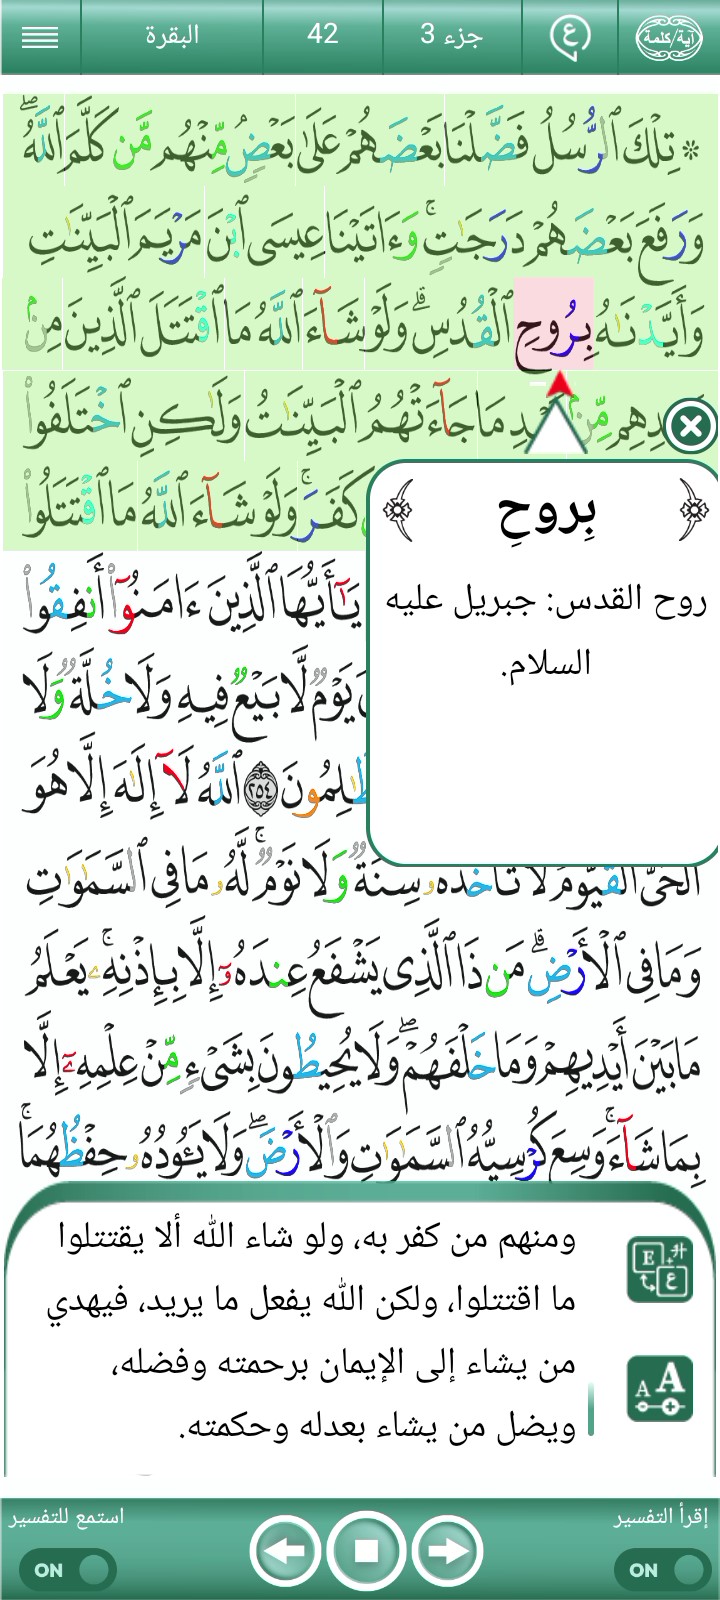 البقرة 42 جزء 3 ع آية/كلمة
* تِلْكَ ٱلرُّسُلُ فَضَّلْنَا بَعْضَهُمْ عَلَىٰ بَعْضٍ مِّنْهُم مَّن كَلَّمَ ٱللَّهُ ۖ
وَرَفَعَ بَعْضَهُمْ دَرَجَـٰتٍ ۚ وَءَاتَيْنَا عِيسَى ٱبْنَ مَرْيَمَ ٱلْبَيِّنَـٰتِ
وَأَيَّدْنَـٰهُ بِرُوحِ ٱلْقُدُسِ ۗ وَلَوْ شَآءَ ٱللَّهُ مَا ٱقْتَتَلَ ٱلَّذِينَ مِنۢ
مِّنۢ مَا جَآءَتْهُمُ ٱلْبَيِّنَـٰتُ وَلَـٰكِنِ ٱخْتَلَفُوا۟
كَفَرَ ۚ وَلَوْ شَآءَ ٱللَّهُ مَا ٱقْتَتَلُوا۟
بِروحِ
روح القدس: جبريل عليه
السلام.
يَـٰٓأَيُّهَا ٱلَّذِينَ ءَامَنُوٓا۟ أَنفِقُوا۟
يَوْمٌ لَّا بَيْعٌ فِيهِ وَلَا خُلَّةٌ وَلَا
٢٥٤ ٱللَّهُ لَآ إِلَـٰهَ إِلَّا هُوَ
ٱلْحَىُّ ٱلْقَيُّومُ لَا تَأْخُذُهُۥ سِنَةٌ وَلَا نَوْمٌ ۚ لَّهُۥ مَا فِى ٱلسَّمَـٰوَٰتِ
وَمَا فِى ٱلْأَرْضِ ۗ مَن ذَا ٱلَّذِى يَشْفَعُ عِندَهُۥٓ إِلَّا بِإِذْنِهِۦ ۚ يَعْلَمُ
مَا بَيْنَ أَيْدِيهِمْ وَمَا خَلْفَهُمْ ۖ وَلَا يُحِيطُونَ بِشَىْءٍ مِّنْ عِلْمِهِۦٓ إِلَّا
بِمَا شَآءَ ۚ وَسِعَ كُرْسِيُّهُ ٱلسَّمَـٰوَٰتِ وَٱلْأَرْضَ ۖ وَلَا يَـُٔودُهُۥ حِفْظُهُمَا ۚ
ومنهم من كفر به، ولو شاء الله ألا يقتتلوا
ما اقتتلوا، ولكن الله يفعل ما يريد، فيهدي
من يشاء إلى الإيمان برحمته وفضله،
ويضل من يشاء بعدله وحكمته.
E ع
A A
إقرأ التفسير استمع للتفسير
ON ON